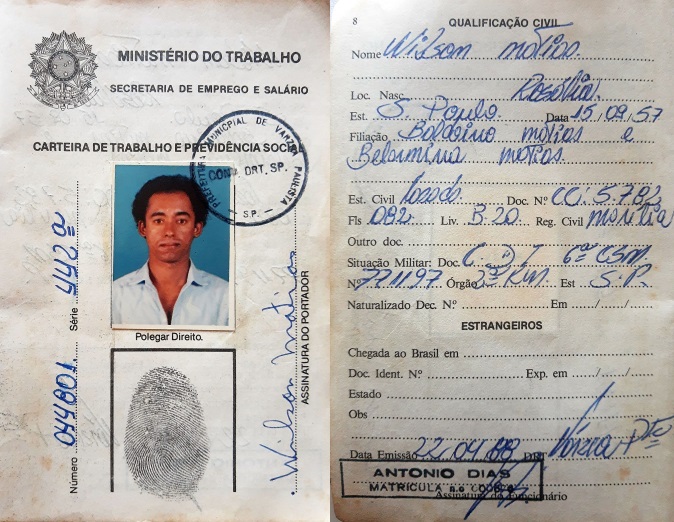 MINISTÉRIO DO TRABALHO
SECRETARIA DE EMPREGO E SALÁRIO
CARTEIRA DE TRABALHO E PREVIDÊNCIA SOCIAL
PREFEITURA MUNICIPAL DE VARZEA PAULISTA
CONV. DRT. SP.
- S.P. -
Polegar Direito.
Número 044801 Série 442ª
Wilson Matias
ASSINATURA DO PORTADOR
8
QUALIFICAÇÃO CIVIL
Nome Wilson Matias.
Loc. Nasc. Rosália.
Est. S. Paulo. Data 15.09.57
Filiação Balduino Matias e
Belarmina Matias.
Est. Civil Casado. Doc. N.º CC: 5.782
Fls 082 Liv. B.20 Reg. Civil Marilia
Outro doc.
Situação Militar: Doc. C D I 6ª CSM.
N.º 771197 Órgão 2ª R.M Est S.P.
Naturalizado Dec. N.º Em / /
ESTRANGEIROS
Chegada ao Brasil em
Doc. Ident. N.º Exp. em / /
Estado
Obs
Data Emissão 22.04.88 DRT Várzea Pta
ANTONIO DIAS
MATRÍCULA
Assinatura do Funcionário